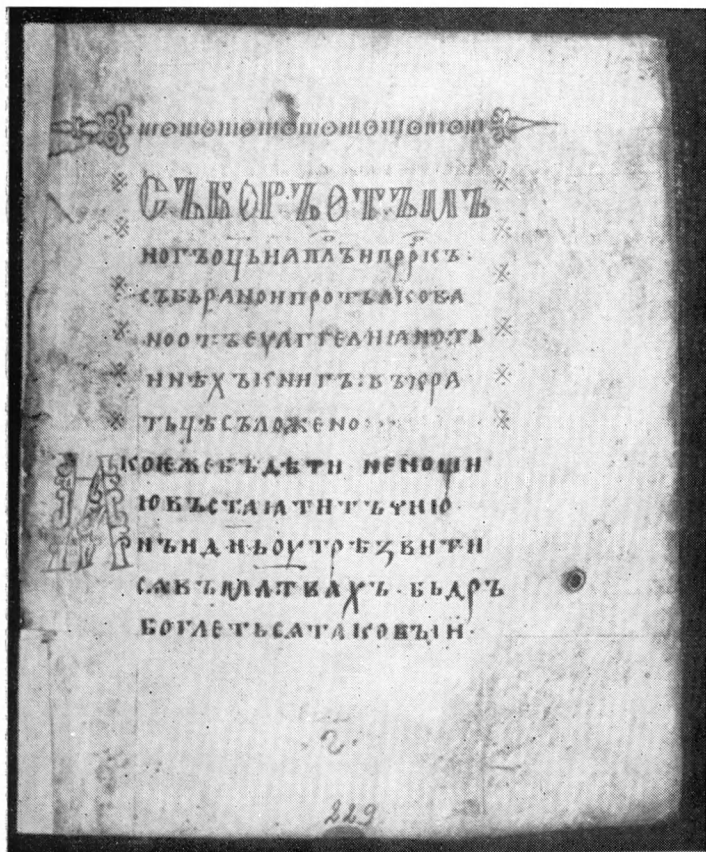 СЪБОРЪОТЪМЪ
НОГЪОЦЬИАПЛЪИПРРКЪ:
СЪБЬРАНОИПРОТЪЛКОВА
НООТЪЕУАГГЕЛИꙖИОТЪ
ИНѢХЪКНИГЪ:ВЪКРА
ТЬЦѢСЪЛОЖЕНО····
ꙖКОЕЖЕБЪДѢТИ НЕНОЩИ
ЮВЪСТАꙖТИТЪЧИЮ
НЪИДНЬОУТРѢЗВИТИ
СѦВЪМЛТВАХЪ·БЪДРЪ
БОГЛЕТЬСѦТАКОВЪIИ·
229